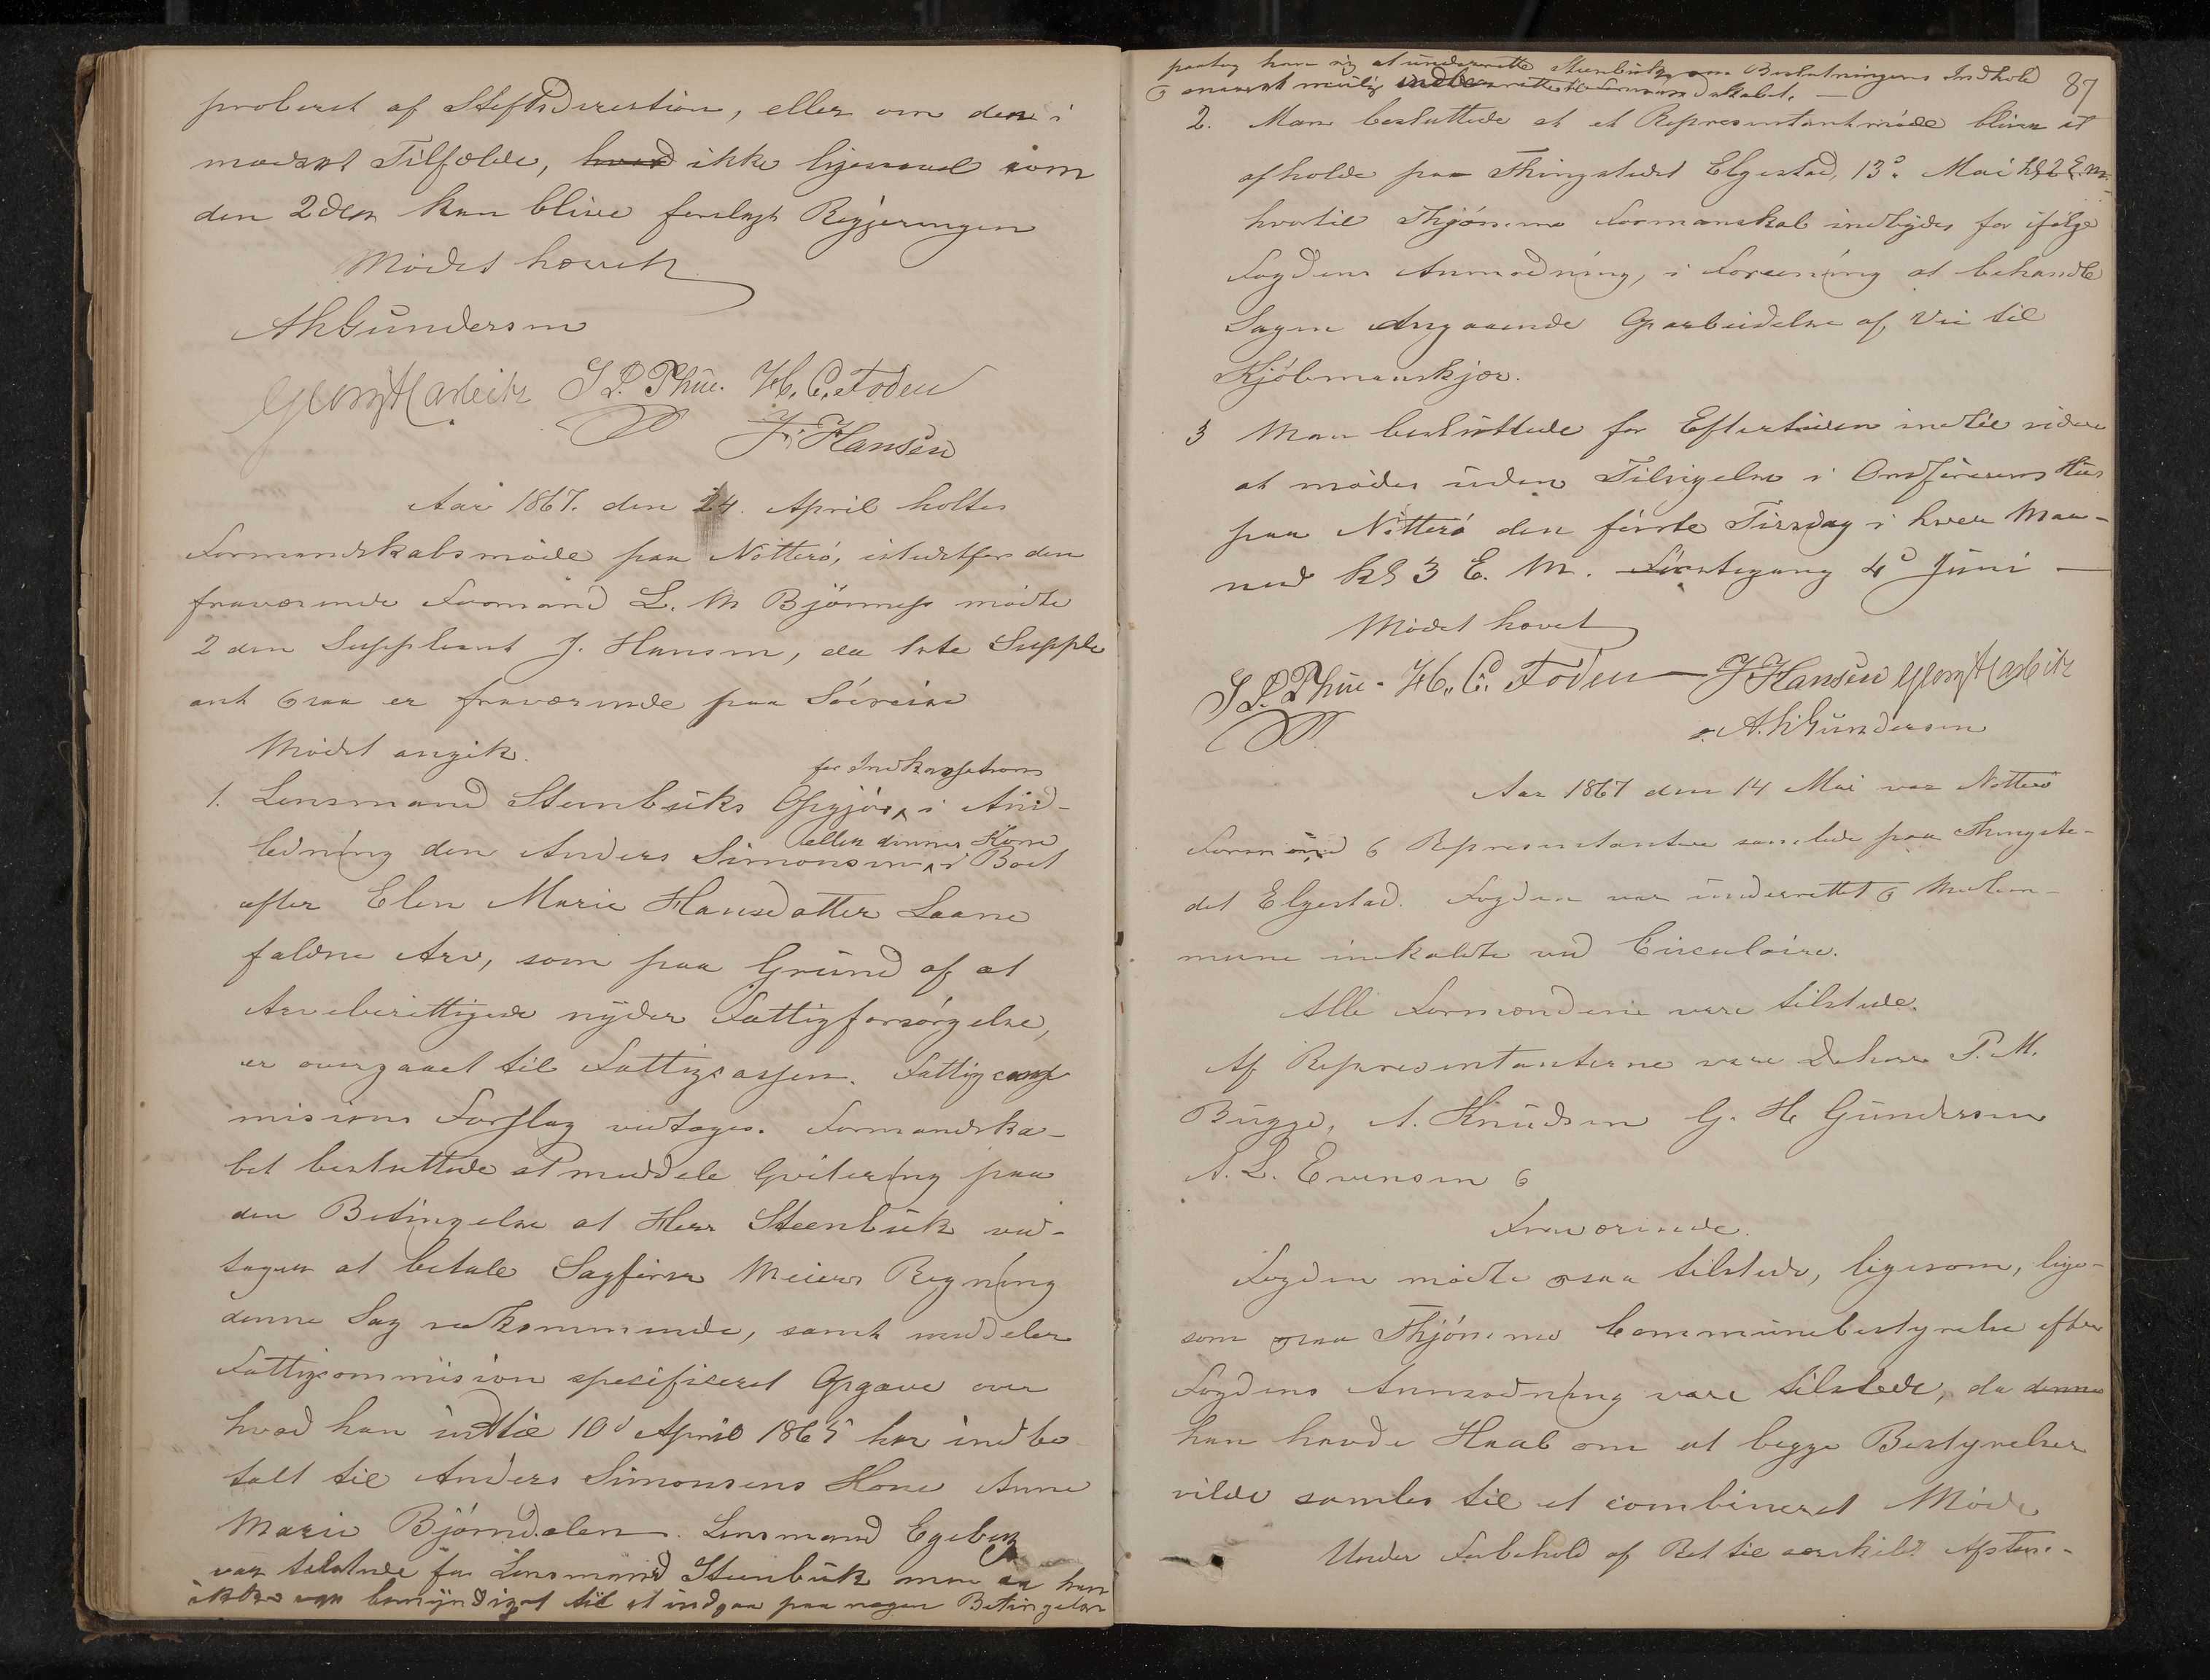 proberet af Stiftsdirektion, eller om den i
modsat Tilfælde, hvad ikke ligesaavel som
den 2den kan blive forelagt Regjeringen
Mødet hævet
AhGundersen
Georg Carbeitz S L Thue. H. C. Foden
J. Hansen
Aar 1867. den 24. April holtes
Formandskabsmøde paa Nøtterø, istedetfor den
fraværende Formand L. M Bjønness mødte
2den Suppleant J. Hansen, da 1ste Supple
ant ogsaa er fraværende paa Søireise
Mødet angik.
for Indkassations
1. Lensmand Steenbuks Opgjør i And-
eller dennes Kone
ledning den Anders Simonsen i Boet
efter Elen Marie Hansdatter Laane
faldne Arv, som paa Grund af at
Arveberettigede nyder Fattigforsørgelse,
er overgaaet til Fattigcassen. Fattigcom
misions Forslag vedtages. Formandska-
bet besluttede at meddele Qvitering paa
den Betingelse at Herr Steenbuk ved-
tager at betale Sagfører Meiers Regning
denne Sag vedkommende, samt meddeler
Fattigcommision specificeret Opgave over
hvad han indtil 10d April 1865 har indbe
talt til Anders Simonsens Kone Anne
Marie Bjørndalen. Lensmand Egeberg
var tilstede for Lensmand Steenbuk men da han
ikke var bemyndiget til at indgaa paa nogen Betingelse
paatog han sig at underrette Steenbuk om Beslutningens Indhold 87
o snarest mulig underrette Formandskabet.
2. Man besluttede at et Representantmøde bliver at
afholde paa Thingstedet Elgestad, 13d Mai Kl 2 E. M.
hvortil Thjømme Formanskab indbydes for ifølge
Fogdens Anmodning, i Forening at behandle
Sagen Angaaende Oparbeidelse af Vei til
Kjøbmanskjær.
3 Man besluttede for Eftertiden indtil videre
at mødes uden Tilsigelse i Ordførerens Hus
paa Nøtterø den første Tirsdag i hver Maa-
ned Kl 3 E. M. Førstegang 4d Juni
Mødet hævet
S L. Thue - H. C. Foden J Hansen Georg Carbeitz
A. h Gundersen
Aar 1867 den 14 Mai var Nøtterø
Formænd o Representantere samlede paa Thingste-
det Elgestad. Fogden var underrettet o Medlem-
mene indkaldte ved Circulaire.
Alle Formændene vare tilstede.
Af Representanterne vare Dhrr P. M.
Bugge, A. Knudsen G. H Gundersen
A. L. Evensen o
Fraværende.
Fogden mødte ogsaa tilstede, ligesom, lige-
som ogsaa Thjømme Communebestyrelse efter
Fogdens Anmodning vare tilstede, da denne
han havde Haab om at begge Bestyrelser
vilde samles til et combineret Møde
Under Forbehold af Ret til særskilt Afstem-